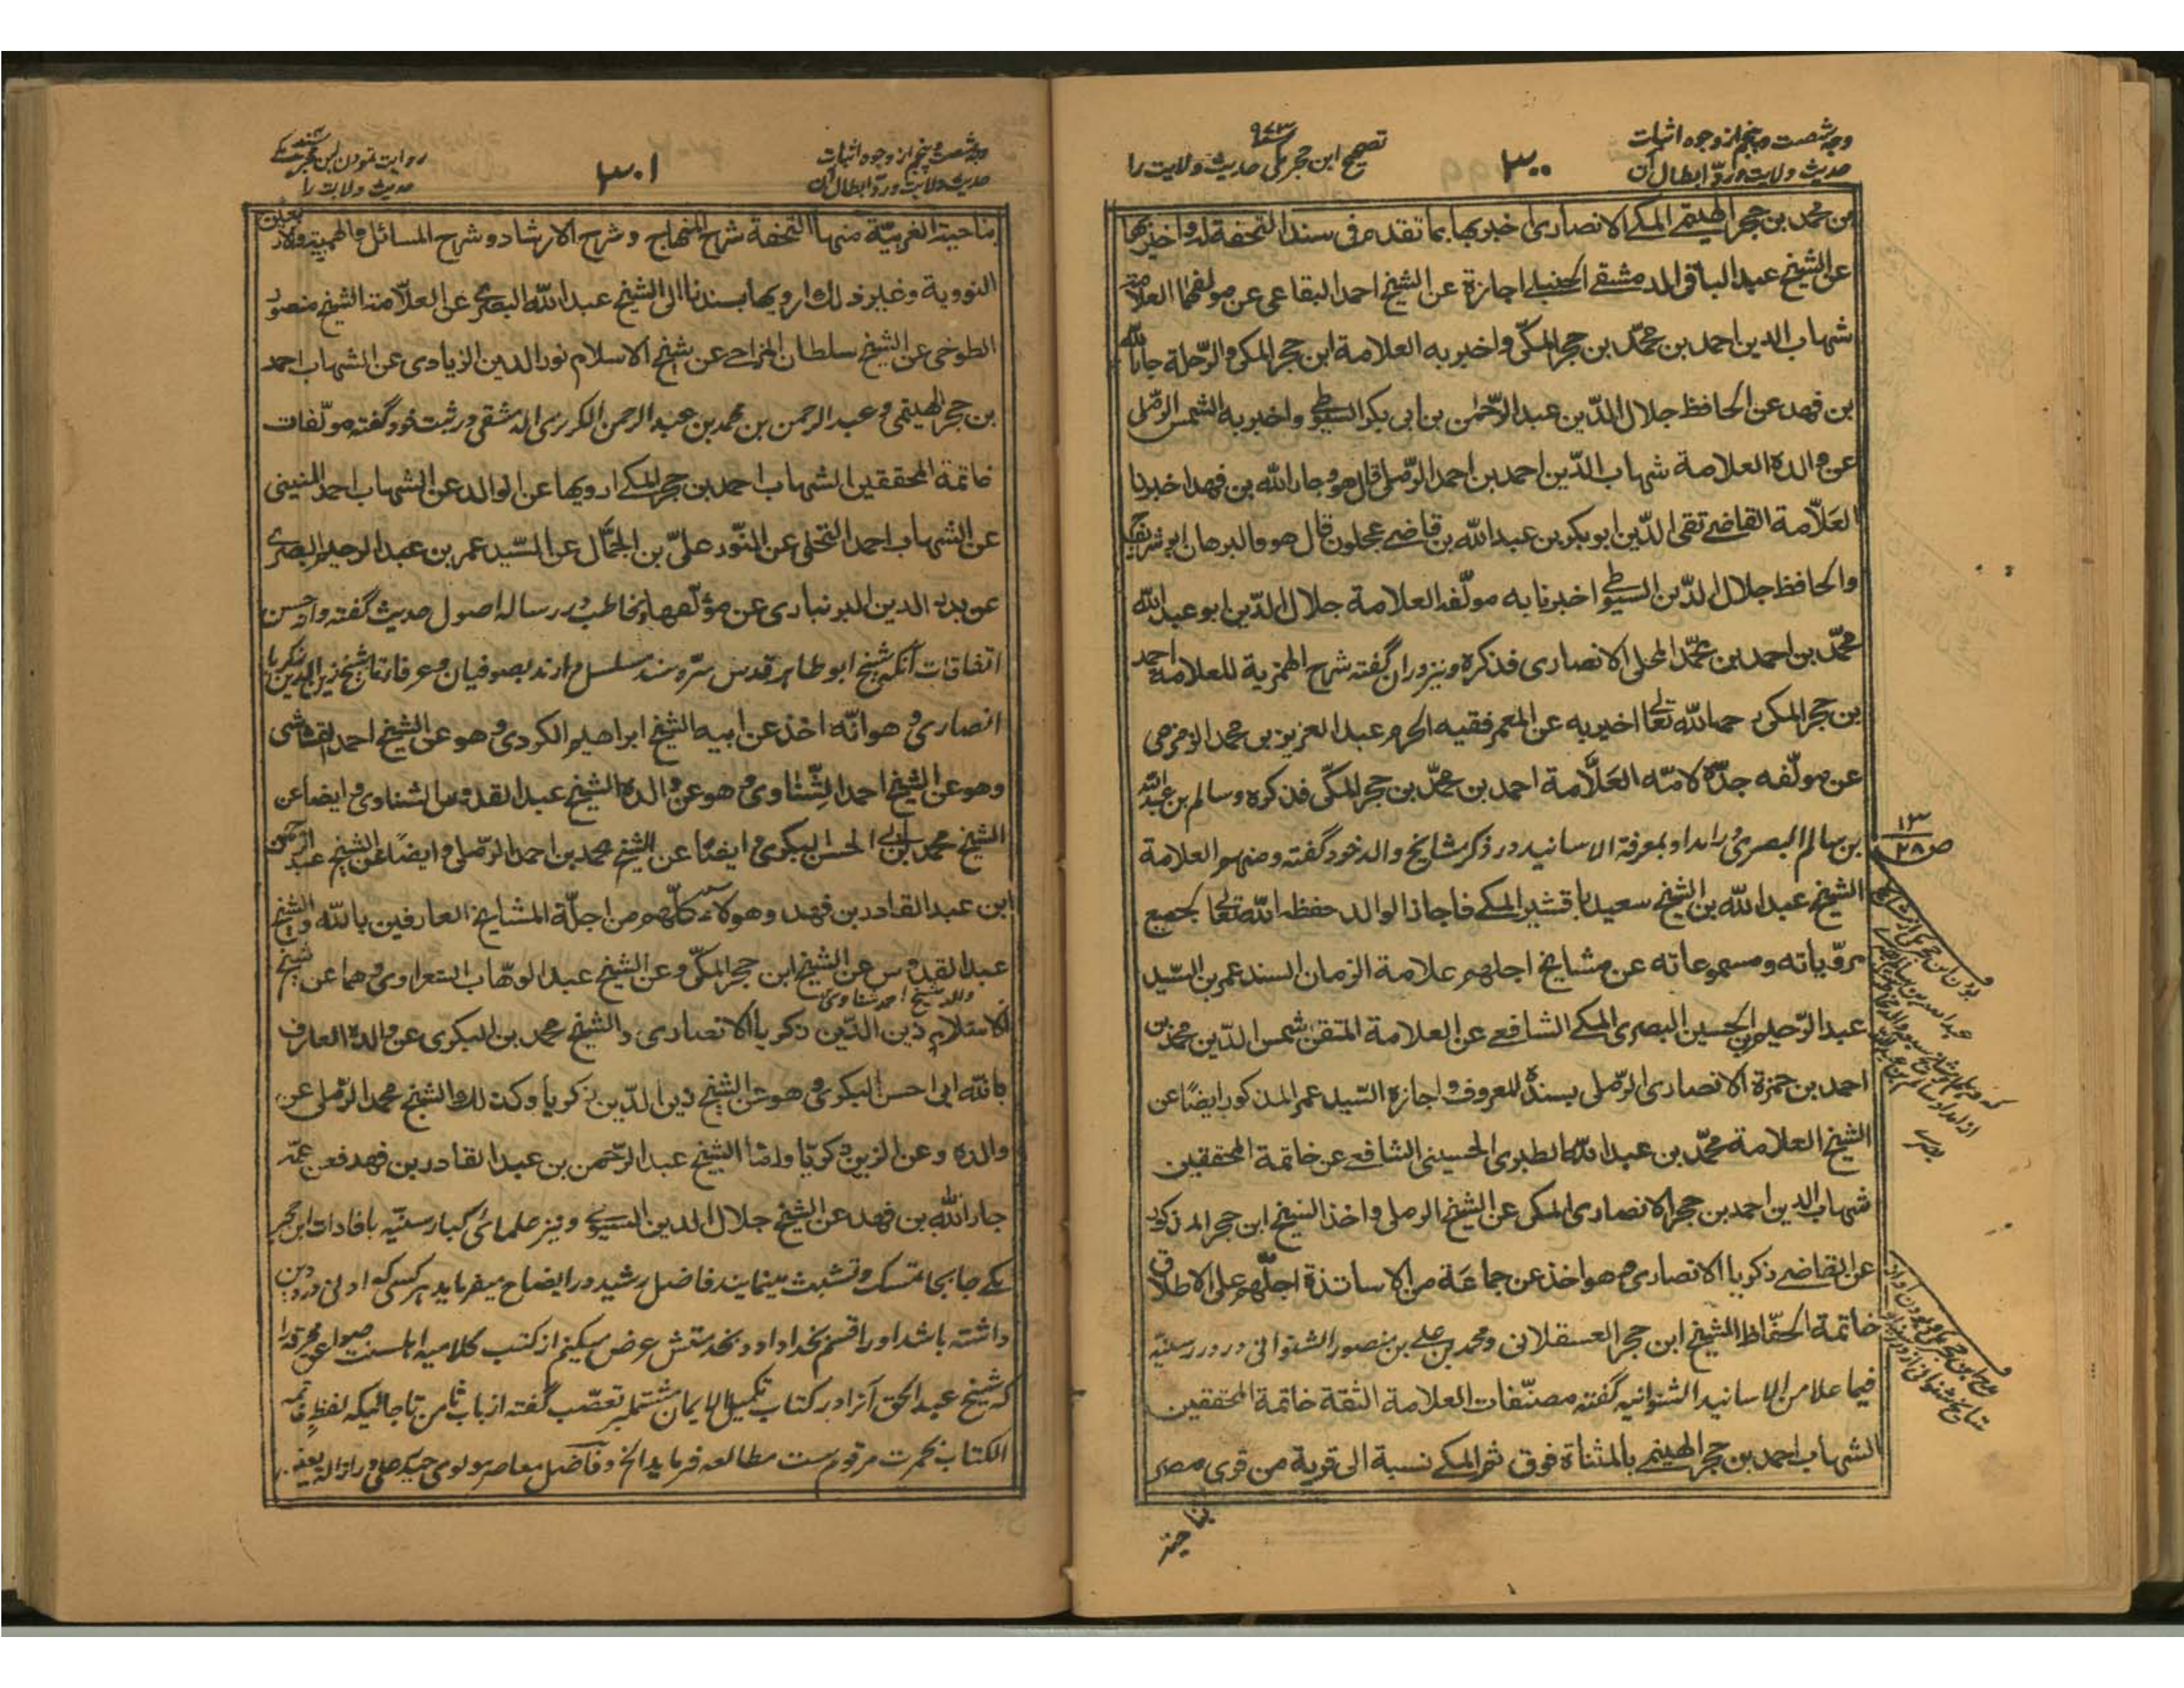 وجه شصت و پنجم از وجوه اثبات
حدیث ولایت و رد ابطال آن
۳۰۰
۹۷۳
تصحیح ابن حجر مکی حدیث ولایت را
بن محمد بن حجر الهیتمی المکی الانصاری اخبر بها بما تقدم فی سند التحفة له واخبر بها
عن الشیخ عبد الباقی الدمشقی الحنبلی اجازة عن الشیخ احمد البقاعی عن مولفهما العلامة
شهاب الدین احمد بن محمّد بن حجر المکّی واخبر به العلامة ابن حجر المکی والرّحلة جار الله
بن فهد عن الحافظ جلال الدّین عبد الرّحمٰن بن ابی بکر السیوطی واخبر به الشمس الرّملی
عن والده العلامة شهاب الدّین احمد بن احمد الرّملی قال هو وجار الله بن فهد اخبرنا
العَلّامة القاضی تقی الدّین ابو بکر بن عبد الله بن قاضی عجلون قال هو والبرهان ابن شریف
والحافظ جلال الدّین السیوطی اخبرنا به مولّفه العلامة جلال الدّین ابو عبد الله
محمّد بن احمد بن محمّد المحلی الانصاری فذکره ونیز در ان گفته شرح الهمزیة للعلامة احمد
بن حجر المکی رحمه الله تعالی اخبر به عن المعمر فقیه الحرم عبد العزیز بن محمد الزمزمی
عن مولّفه جدّه لامّه العَلّامة احمد بن محمّد بن حجر المکّی فذکره وسالم بن عبد الله
بن سالم البصری در امداد بمعرفة الاسانید در ذکر مشایخ والد خود گفته ومنهم العلامة
الشیخ عبد الله بن الشیخ سعید باقشیر المکی فاجاز الوالد حفظه الله تعالی بجمیع
مرویّاته ومسموعاته عن مشایخ اجلهم علامة الزمان السند عمر بن السّید
عبد الرّحیم بن الحسین البصری المکی الشافعی عن العلامة المتقن شمس الدّین محمد بن
احمد بن حمزة الانصاری الرّملی بسنده المعروف واجازة السّید عمر المذکور ایضًا عن
الشیخ العلامة محمّد بن عبد الله الطبری الحسینی الشافعی عن خاتمة المحققین
شهاب الدین احمد بن حجر الانصاری المکی عن الشیخ الرملی واخذ الشیخ ابن حجر المذکور
عن القاضی زکریا الانصاری وهو اخذ عن جماعَة من الاساتذة اجلّهم علی الاطلاق
خاتمة الحفّاظ الشیخ ابن حجر العسقلانی ومحمد بن علی بن منصور الشنوانی در درر سنیّه
فیما علا من الاسانید الشنوانیه گفته مصنّفات العلامة الثقة خاتمة المحققین
الشهاب احمد بن حجر الهیتمی بالمثناة فوق ثم المکی نسبة الی قریة من قری مصر
بناحیة
۱۳
ص۲۸
وجه شصت و پنجم از وجوه اثبات
حدیث ولایت و رد ابطال آن
۳۰۱
روایت نمودن ابن حجر مکی
حدیث ولایت را
بناحیة الغربیّة منها التحفة شرح المنهاج وشرح الارشاد وشرح المسائل والهمزیة والار
النوویة وغیر ذلک ارویها بسندنا الی الشیخ عبد الله البصری عن العلّامة الشیخ منصور
الطوخی عن الشیخ سلطان المزاحی عن شیخ الاسلام نور الدین الزیادی عن الشهاب احمد
بن حجر الهیتمی وعبد الرحمن بن محمد بن عبد الرحمن الکزبری الدمشقی در ثبت خود گفته مولّفات
خاتمة المحققین الشهاب احمد بن حجر المکی ارویها عن الوالد عن الشهاب احمد المنینی
عن الشهاب احمد النخلی عن النّور علیّ بن الجمّال عن السّید عمر بن عبد الرحیم البصری
عن بدر الدین البرنباری عن مؤلّفها ومخاطب در رساله اصول حدیث گفته واز حسن
اتفاقات آنکه شیخ ابو طاهر قدس سرّه سند مسلسل دارند بصوفیان وعرفا تا شیخ زین الدین زکریا
انصاری وهو انّه اخذ عن ابیه الشیخ ابراهیم الکردی وهو عن الشیخ احمد القشاشی
وهو عن الشیخ احمد الشِّنّاوی وهو عن والده الشیخ عبد القدوس الشناوی وایضا عن
الشیخ محمد بن ابی الحسن البکری وایضًا عن الشیخ محمد بن احمد الرّملی وایضًا عن الشیخ عبد الرحمن
ابن عبد القادر بن فهد وهولاء کلّهم من اجلّة المشایخ العارفین بالله والشیخ
عبد القدوس عن الشیخ ابن حجر المکّی وعن الشیخ عبد الوهّاب الشعراوی وهما عن شیخ
والد شیخ احمد شناوی
الاسلام زین الدّین زکریا الانصاری والشیخ محمد بن البکری عن والده العارف
بالله ابی الحسن البکری وهو عن الشیخ زین الدّین زکریا وکذلک الشیخ محمد الرّملی عن
والده وعن الزین زکریّا وامّا الشیخ عبد الرّحمن بن عبد القادر بن فهد فعن عمّه
جار الله بن فهد عن الشیخ جلال الدین السیوطی ونیز علمای کبار سنیّه بافادات ابن حجر
مکی جابجا تمسک وتشبث مینمایند فاضل رشید در ایضاح میفرماید هر کسی که ادنی در دین
داشته باشد او را قسم بخدا داده بخدمتش عرض میکنم از کتب کلامیه اهلسنت صواعق محرقه را
که شیخ عبد الحق آنرا در کتاب تکمیل الایمان مشتمل بر تعصّب گفته از باب ثامن تا جائیکه لفظ خاتمه
الکتاب بحمرت مرقوم ست مطالعه فرماید الخ وفاضل معاصر مولوی حیدر علی در ازالة الغین